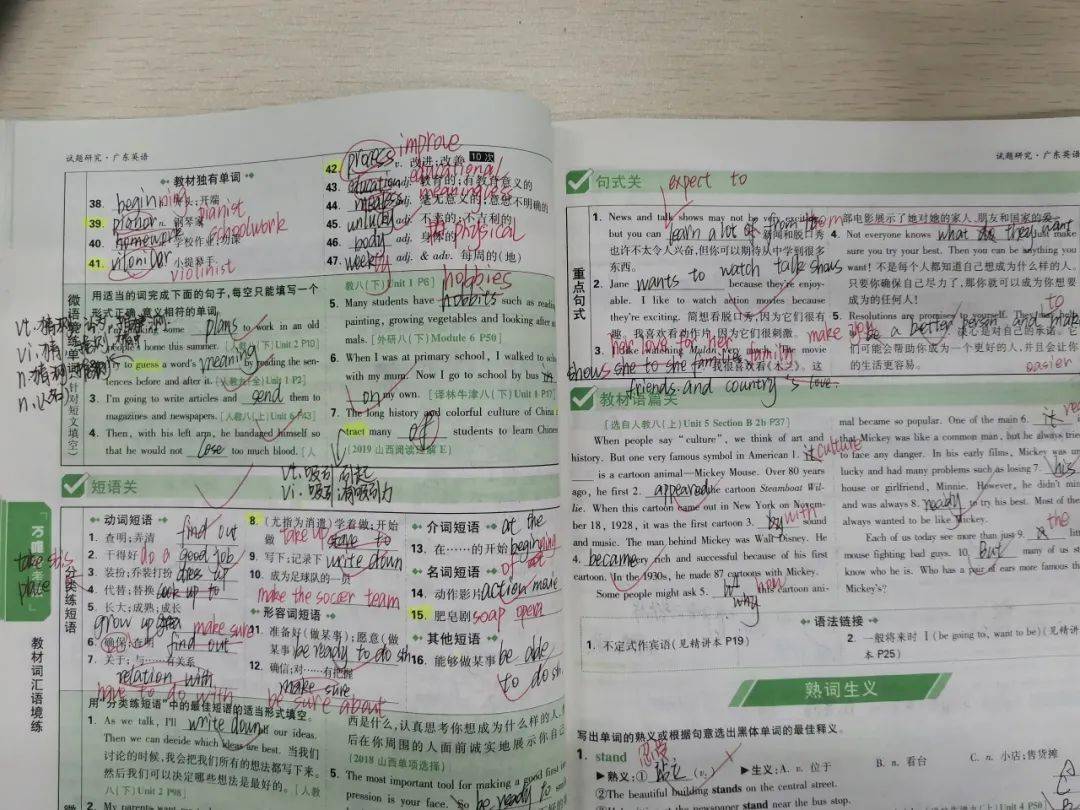 试题研究·广东英语
教材独有单词
38. beginning n. 开头;开端
39. pianist n. 钢琴家
40. homework schoolwork n. 学校作业;功课
41. violinist n. 小提琴手
42. process improve v. 改进;改善 10次
43. education educational adj. 教育的;有教育意义的
44. meaningless adj. 毫无意义的;意思不明确的
45. unlucky adj. 不幸的;不吉利的
46. body physical adj. 身体的
47. weekly adj. & adv. 每周的(地)
用适当的词完成下面的句子,每空只能填写一个
形式正确、意义相符的单词。
some plans to work in an old
people's home this summer. [人教八(下)Unit 2 P10]
2. Try to guess a word's meaning by reading the sen-
tences before and after it. [人教九(全)Unit 1 P2]
3. I'm going to write articles and send them to
magazines and newspapers. [人教八(上)Unit 6 P43]
4. Then, with his left arm, he bandaged himself so
that he would not lose too much blood. [人
教八(下)Unit 1 P6]
hobbies
5. Many students have hobbits such as reading
painting, growing vegetables and looking after
mals. [外研八(下)Module 6 P50]
6. When I was at primary school, I walked to school
with my mum. Now I go to school by bus
on my own. [译林牛津八(下)Unit 1 P17]
7. The long history and colorful culture of China
tract many of students to learn Chinese
(2019 山西阅读还原 E)
vt. 吸引;引起
vi. 吸引
短语关
动词短语
1. 查明;弄清 find out
2. 干得好 do a good job
3. 装扮;乔装打扮 dress up
4. 代替;替换 look up to
take sb's place
5. 长大;成熟;成长
grow up
6. 确保;查明 find out make sure
7. 关于;与……有关系
relation with
have to do with
8. (尤指为消遣)学着做;开始
做 take up
9. 写下;记录下 write down
10. 成为足球队的一员
make the soccer team
形容词短语
11. 准备好(做某事);愿意(做
某事) be ready to do sth
12. 确信;对……有把握
make sure
be sure about
介词短语
13. 在……的开始 at the beginning of
名词短语
14. 动作影片 action movie
15. 肥皂剧 soap opera
其他短语
16. 能够做某事 be able
to do sth
分类练短语
用“分类练短语”中的最佳短语的适当形式填空。
1. As we talk, I'll write down all our ideas.
Then we can decide which ideas are best. 当我们
讨论的时候,我会把我们所有的想法都写下来。
然后我们可以决定哪些想法是最好的。[人教
八(下)Unit 2 P98]
2. My parents want me
西是什么,认真思考你想成为什么样的人,
后在你周围的人面前诚实地展示你自己
(2018 山西单项选择)
5. The most important tool for making a good first im-
pression is your face. So be ready to smile
教材词汇语境练
试题研究·广东英语
句式关
expect to
重点句式
1. News and talk shows may not be very exciting
but you can learn a lot of from them 新闻和脱口秀
也许不太令人兴奋,但你可以期待从中学到很多
东西。
2. Jane wants to watch talk shows because they're enjoy-
able. I like to watch action movies because
they're exciting. 简想看脱口秀,因为它们很有
趣。我喜欢看动作片,因为它们很刺激。
3. I like watching Mulan very much. The movie
her love for her family
shows she to she family 我很喜欢看《木兰》。这
friends and country's love.
部电影展示了她对她的家人、朋友和国家的爱
4. Not everyone knows what do they want Just make
sure you try your best. Then you can be anything you
want! 不是每个人都知道自己想成为什么样的人。
只要你确保自己尽力了,那你就可以成为你想要
成为的任何人!
5. Resolutions are promises to yourself. They
make you be a better person and make 决心是对自己的承诺。它
们可能会帮助你成为一个更好的人,并且会让你
的生活更容易。
easier
教材语篇关
[选自人教八(上)Unit 5 Section B 2b P37]
When people say “culture”, we think of art and
history. But one very famous symbol in American 1. it culture
is a cartoon animal—Mickey Mouse. Over 80 years
ago, he first 2. appeared the cartoon Steamboat Wil-
lie. When this cartoon came out in New York on Novem-
ber 18, 1928, it was the first cartoon 3. by with sound
and music. The man behind Mickey was Walt Disney. He
4. became rich and successful because of his first
cartoon. In the 1930s, he made 87 cartoons with Mickey.
Some people might ask 5. how this cartoon ani-
why
mal became so popular. One of the main 6.
that Mickey was like a common man, but he always tried
to face any danger. In his early films, Mickey was un-
lucky and had many problems such as losing 7. his
house or girlfriend, Minnie. However, he didn't min
and was always 8. ready to try his best. Most of the
always wanted to be like Mickey.
Each of us today see more than just 9. a the li
mouse fighting bad guys. 10. But many of us st
know who he is. Who has a pair of ears more famous tha
Mickey's?
语法链接
1. 不定式作宾语(见精讲本 P19)
2. 一般将来时 I (be going to, want to be)(见精讲
本 P25)
熟词生义
写出单词的熟义或根据句意选出黑体单词的最佳释义。
1. stand
▶熟义:① 站立 (v.)
▶生义:A. v. 位于
B. n. 看台
C. n. 小店;售货摊
②The beautiful building stands on the central street.
newspaper stand near the bus stop.